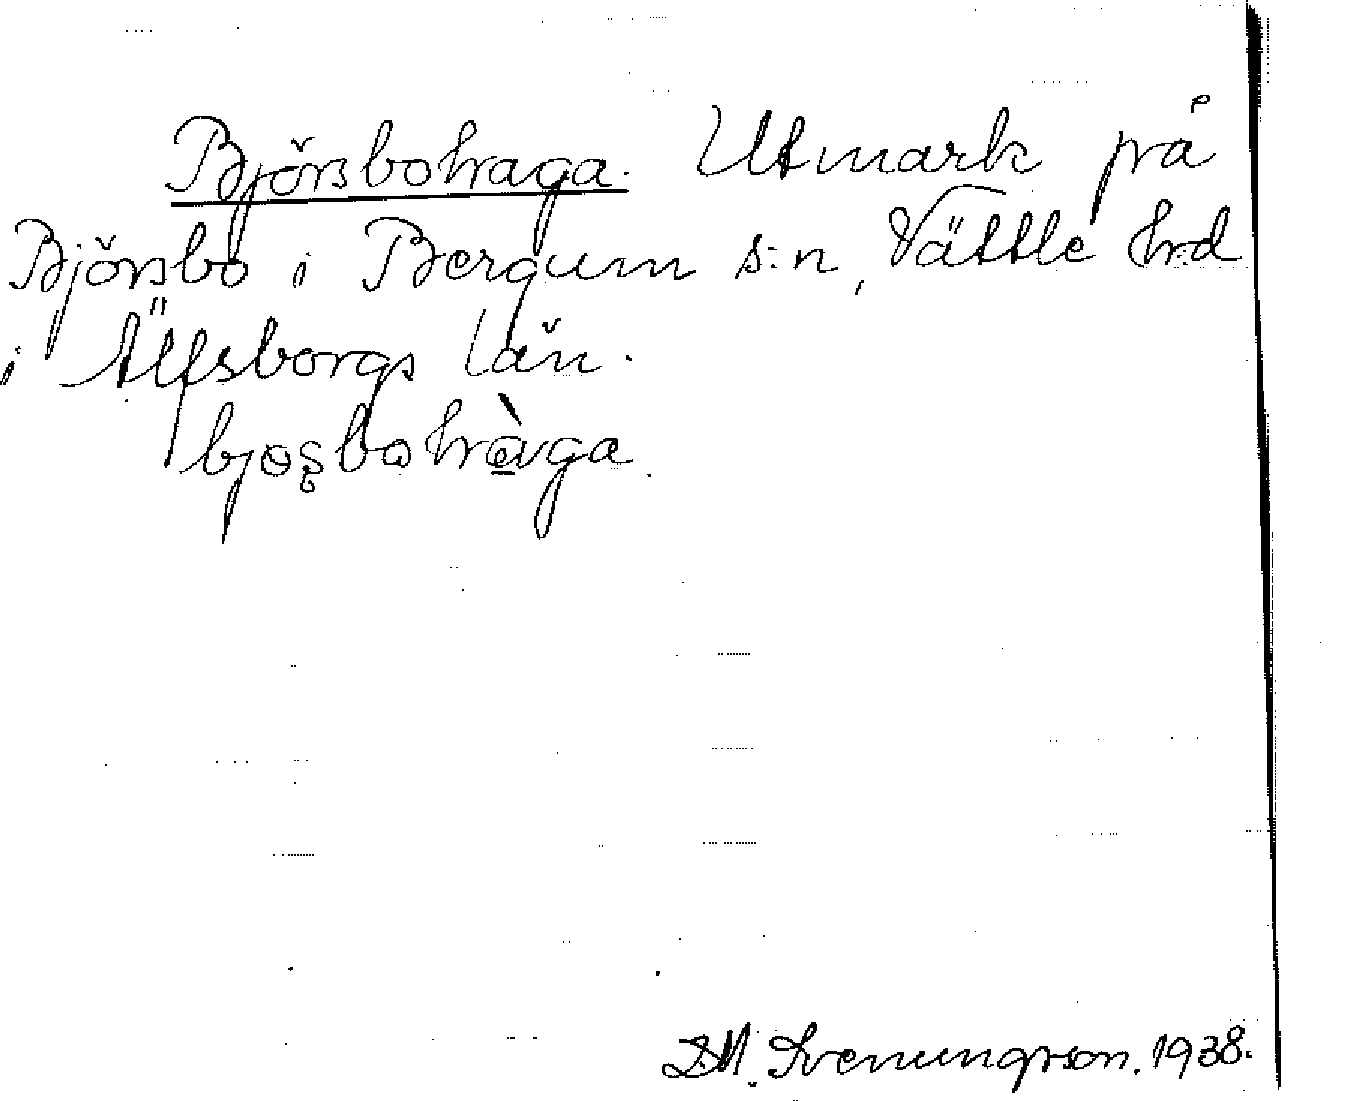 Björsbohaga. Utmark på
Björsbo i Bergum s:n, Vättle hrd
i Älfsborgs län.
bjosbohàga.
D.M. Svenungsson. 1938.